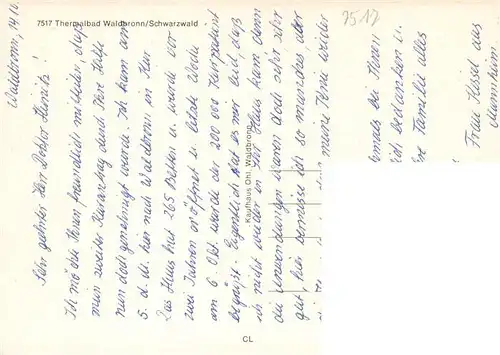 7517 Thermalbad Waldbronn/Schwarzwald
7517
Waldbronn, 14.10.
Sehr geehrter Herr Doktor Heinitz!
Ich möchte Ihnen freundlich mitteilen, daß
mein zweiter Kurantrag durch Ihre Hilfe
nun doch genehmigt wurde. Ich kam am
5. d. M. hier nach Waldbronn in Kur.
Das Haus hat 265 Betten u. wurde vor
zwei Jahren eröffnet u. letzte Woche
am 6. Okt. wurde der 200 000 Kurpatient
begrüßt. Eigentlich tat es mir leid, daß
ich nicht wieder in Ihr Haus kam, denn
die Anwendungen waren doch sehr sehr
gut, hier vermisse ich so manches aber
meine Knie wieder
nochmals bei Ihnen,
bedanken u.
Ihre Familie alles
Frau Hissel aus
Mannheim
Kaufhaus Ohl, Waldbronn
CL